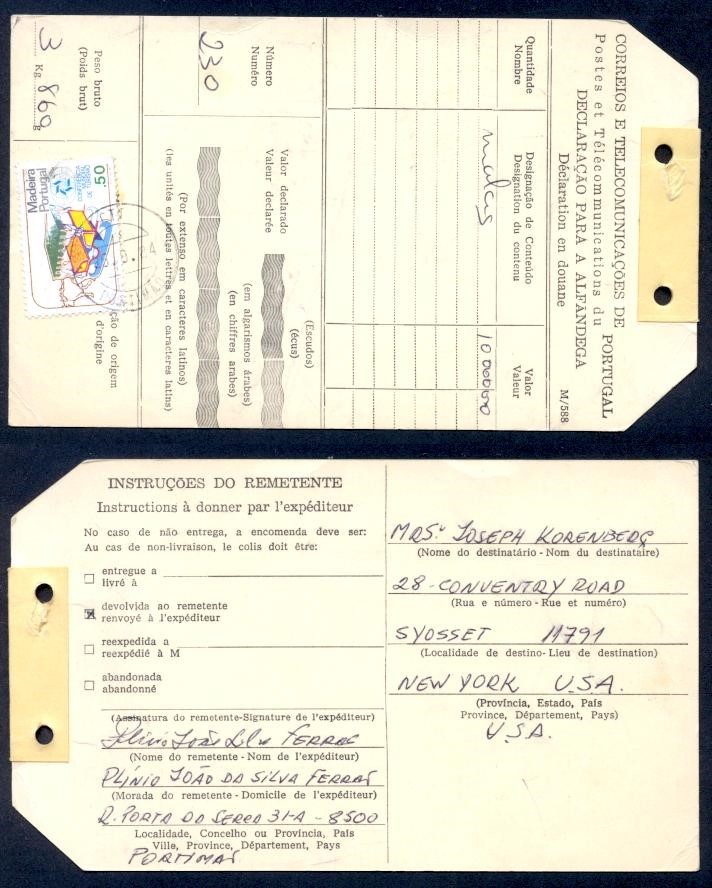 CORREIOS E TELECOMUNICAÇÕES DE PORTUGAL
Postes et Télécommunications du
DECLARAÇÃO PARA A ALFÂNDEGA
Déclaration en douane
M/588
Quantidade
Nombre
Designação de Conteúdo
Designation du contenu
Valor
Valeur
malas
Número
Numéro
230
Valor declarado
Valeur declarée
(Escudos)
(écus)
(em algarismos árabes)
(en chiffres arabes)
(Por extenso em caracteres latinos)
(les unités en toutes lettres et en caracteres latins)
Peso bruto
(Poids brut)
3 Kg 860 g
ção de origem
d'origine
50
Portugal
Madeira
INSTRUÇÕES DO REMETENTE
Instructions à donner par l'expéditeur
No caso de não entrega, a encomenda deve ser:
Au cas de non-livraison, le colis doit être:
entregue a
livré à
devolvida ao remetente
renvoyé à l'expéditeur
reexpedida a
reexpédié à M
abandonada
abandonné
(Assinatura do remetente-Signature de l'expéditeur)
Plínio João Silva Ferraz
(Nome do remetente - Nom de l'expéditeur)
PLÍNIO JOÃO DA SILVA FERRAZ
(Morada do remetente - Domicile de l'expéditeur)
R. PORTA DA SERRA 31-A - 8500
Localidade, Concelho ou Província, País
Ville, Province, Département, Pays
PORTIMAO
MRS. JOSEPH KORENBERG
(Nome do destinatário - Nom du destinataire)
28 - CONVENTRY ROAD
(Rua e número - Rue et numéro)
SYOSSET 11791
(Localidade de destino - Lieu de destination)
NEW YORK U.S.A.
(Província, Estado, País
Province, Département, Pays)
U.S.A.